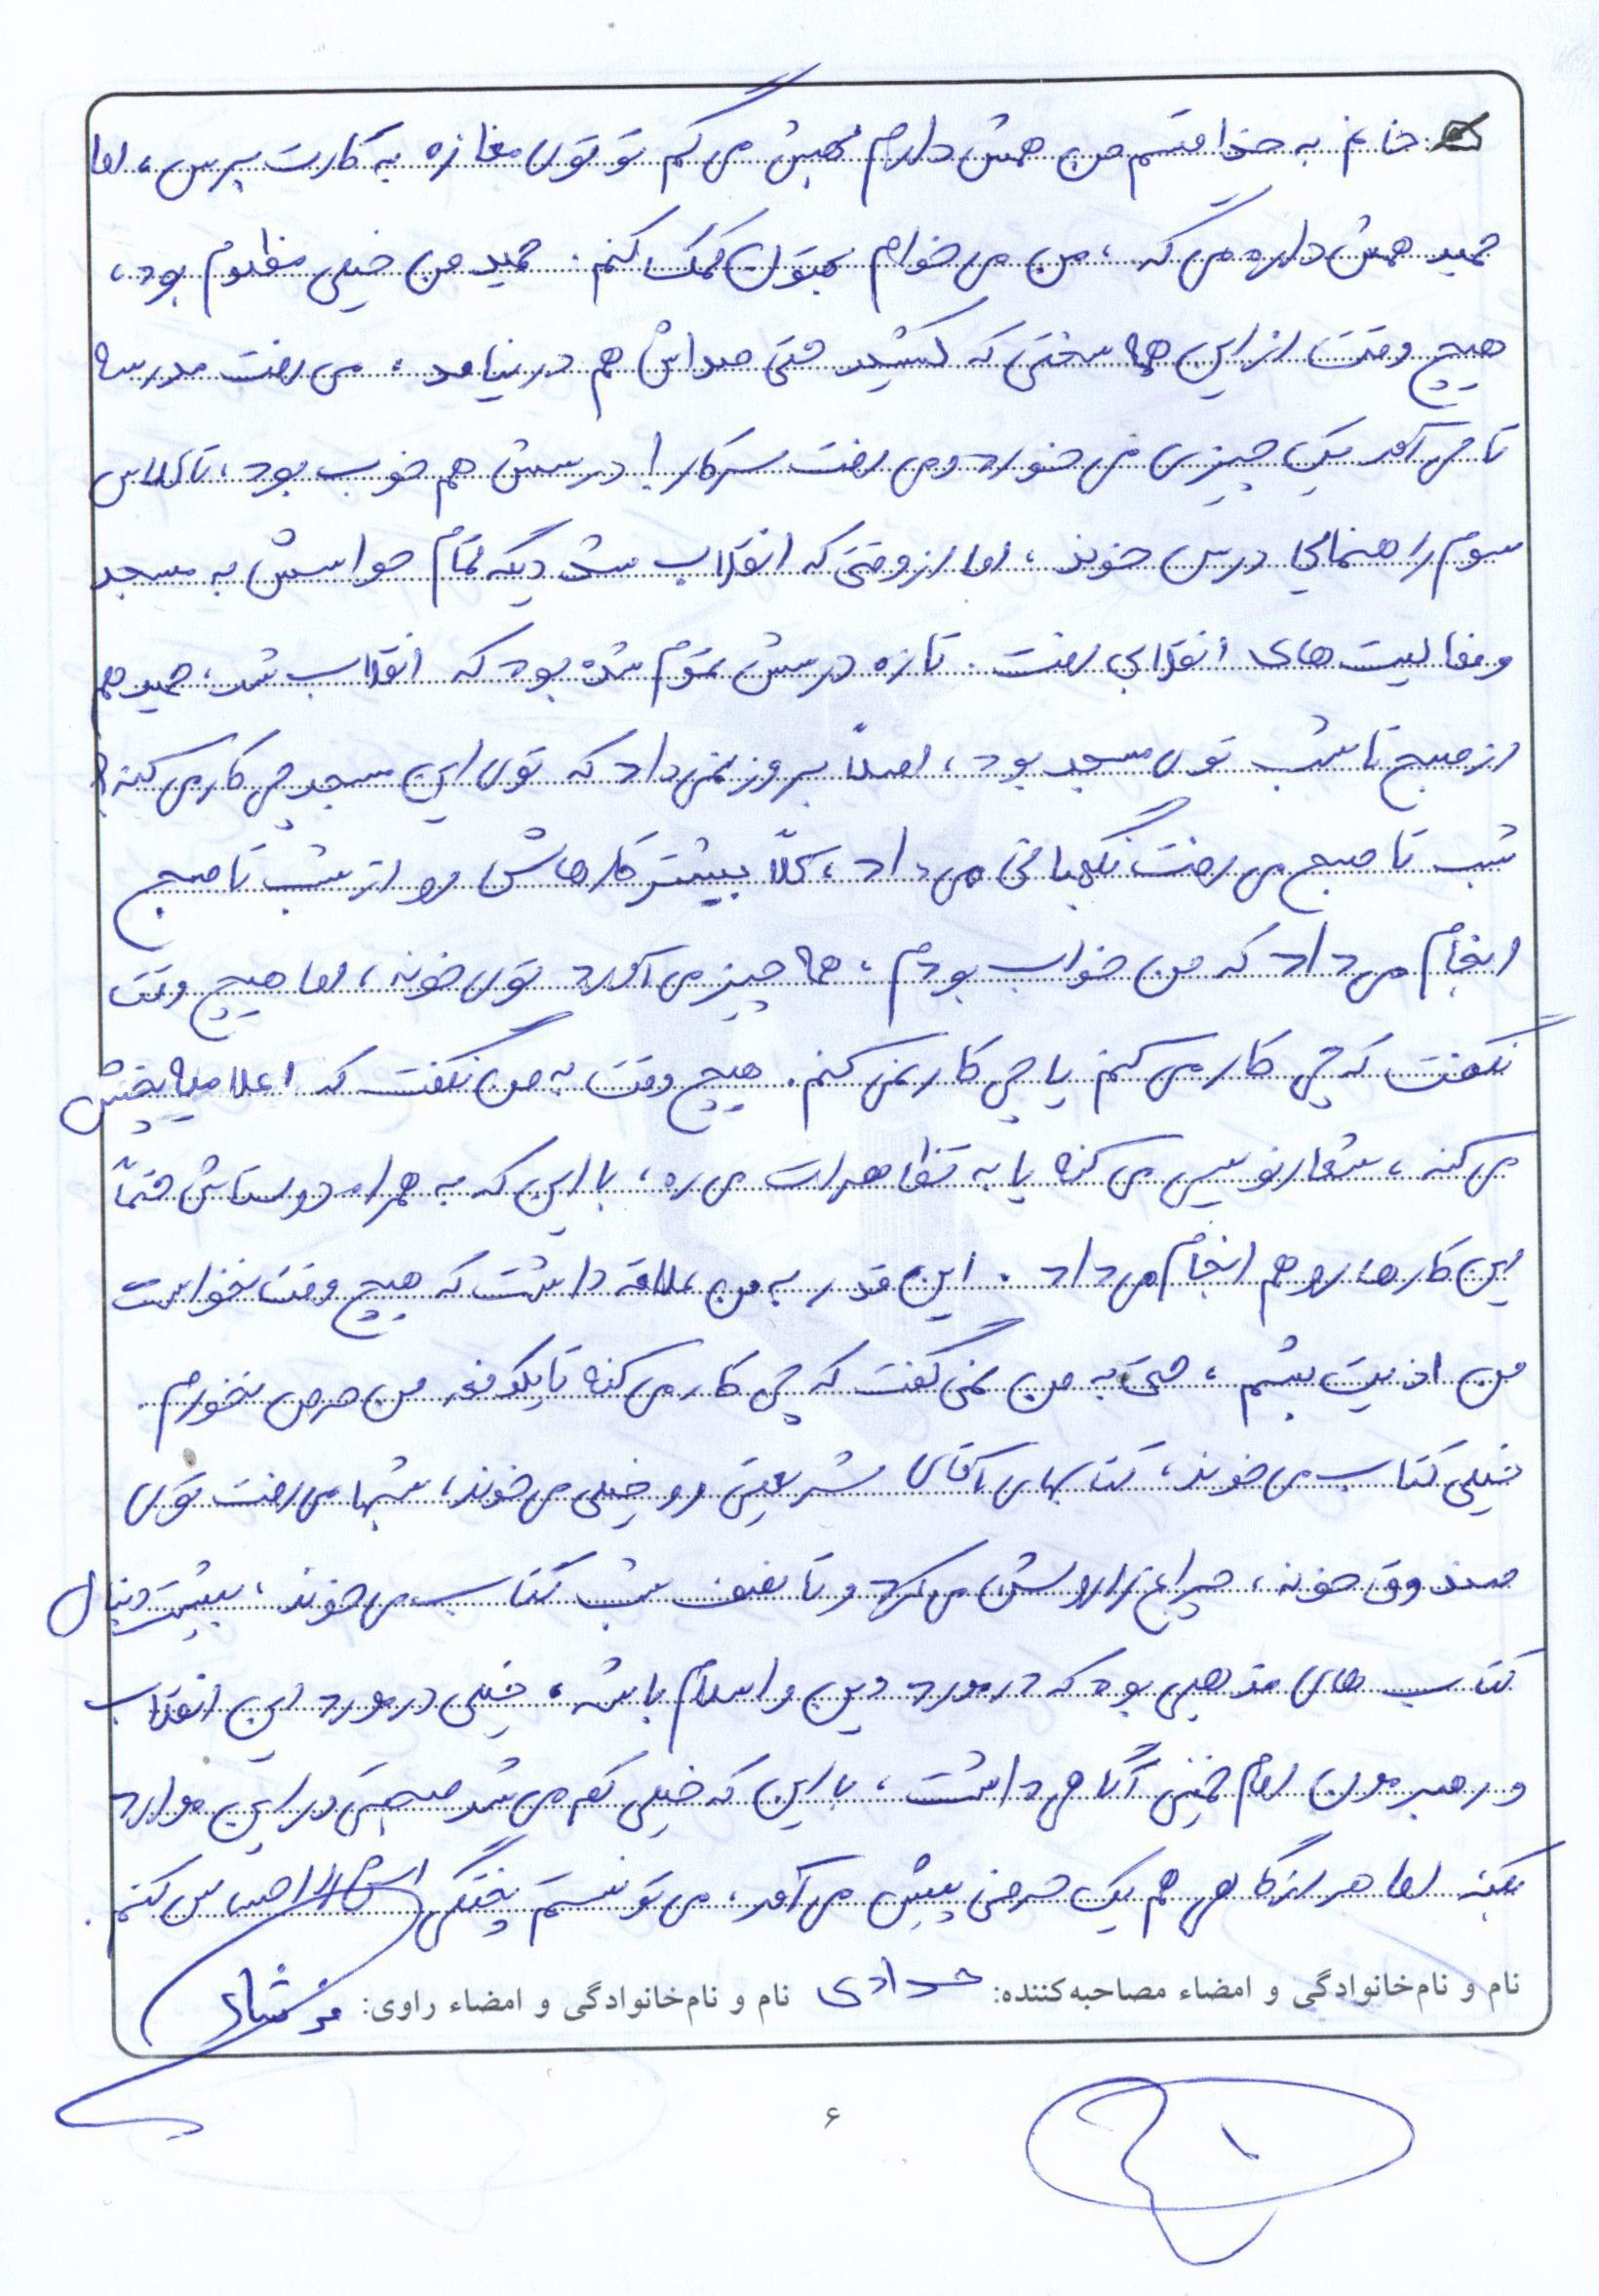 خانم به خدا قسم من همش دارم بهش می گم تو توی مغازه به کارت برس، اما
حمید همش داره می گه، من می خوام بهتون کمک کنم. حمید من خیلی مظلوم بود،
هیچ وقت از این همه سختی که کشید حتی صداش هم در نیامد، می رفت مدرسه
تا می آمد یک چیزی می خورد و می رفت سرکار! درسش هم خوب بود، تا کلاس
سوم راهنمایی درس خوند، اما از وقتی که انقلاب شد دیگه تمام حواسش به مسجد
و فعالیت های انقلابی رفت. تازه درسش تموم شده بود که انقلاب شد، حمید هم
از صبح تا شب توی مسجد بود، اصلاً بروز نمی داد که توی این مسجد چی کار می کنه؟
شب تا صبح می رفت نگهبانی می داد، کلاً بیشتر کارهاش رو از شب تا صبح
انجام می داد که من خواب بودم، همه چیز می آورد توی خونه، اما هیچ وقت
نگفت که چی کار می کنم یا چی کار نمی کنم. هیچ وقت به من نگفت که اعلامیه پخش
می کنه، شعارنویسی می کنه یا به تظاهرات می ره، با این که به همراه دوستاش حتماً
این کارها رو هم انجام می داد. این قدر به من علاقه داشت که هیچ وقت نخواست
من اذیت بشم، حتی به من نمی گفت که چی کار می کنه تا یک وقت من حرص نخورم.
خیلی کتاب می خوند، کتابهای آقای شریعتی رو خیلی می خوند، شبها می رفت توی
صندوق خونه، چراغ را روشن می کرد و تا نصف شب کتاب می خوند، بیشتر دنبال
کتاب های مذهبی بود که در مورد دین و اسلام باشه، خیلی در مورد این انقلاب
و رهبرمون امام خمینی آگاهی داشت، با این که خیلی کم می شد صحبتی در این موارد
بکنه اما هر از گاهی هم یک حرفی پیش می آمد، می تونستم پختگی اش را احساس کنم.
نام و نام خانوادگی و امضاء مصاحبه کننده: نام و نام خانوادگی و امضاء راوی:
۶